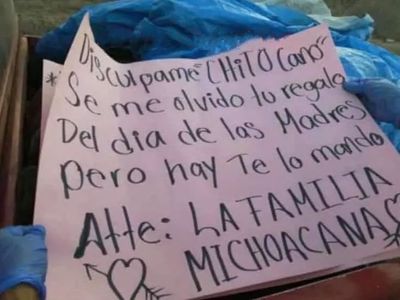 Disculpame "CHITO Cano"
* Se me olvido tu regalo
Del dia de las Madres
pero hay Te lo mando
Atte: LA FAMILIA
MICHOACANA